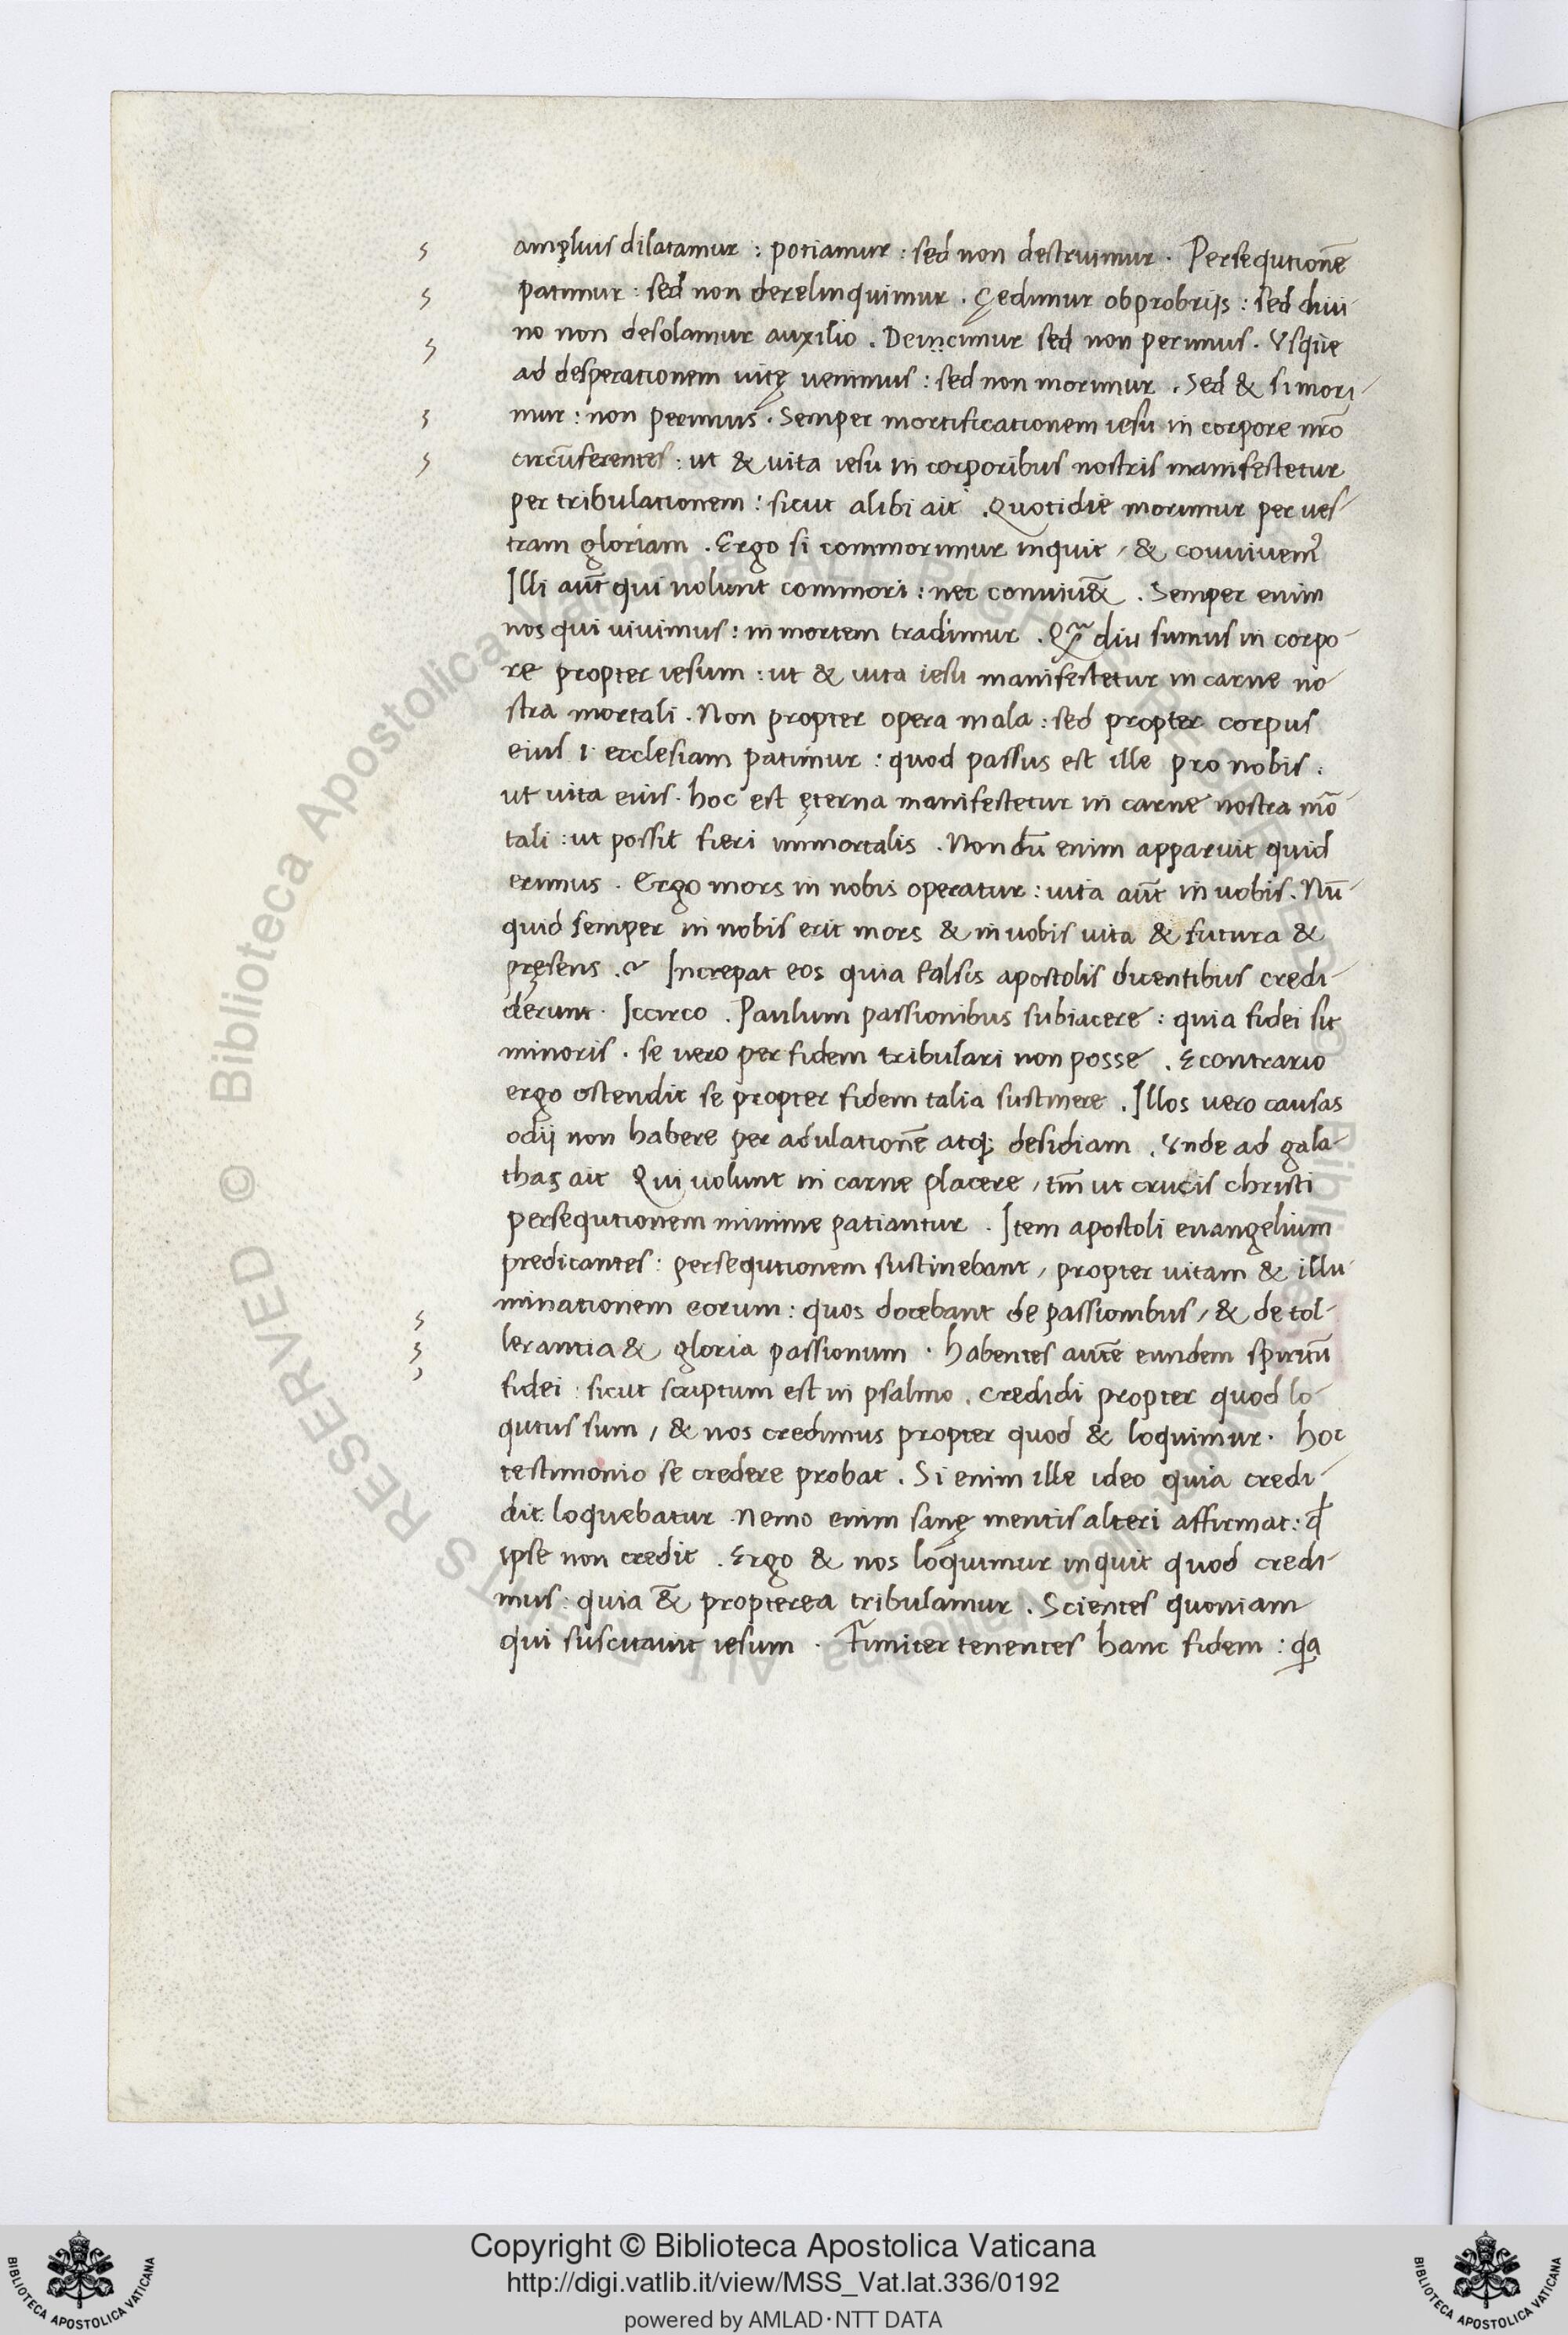 amplius dilatamur : potiamur : sed non destruimur . Persequtionē
patimur : sed non derelinquimur . Cędimur obprobrijs : sed diui-
no non desolamur auxilio . Deiicimur sed non perimus . Vsque
ad desperationem uitę uenimus : sed non morimur . Sed & si mori-
mur : non perimus . Semper mortificationem iesu in corpore nr̄o
circūferentes : ut & uita iesu in corporibus nostris manifestetur
per tribulationem : sicut alibi ait . Quotidie morimur per ues-
tram gloriam . Ergo si commorimur inquit , & conuiuem᷒
Illi aut̄ qui nolunt commori : nec conuiu&̄ . Semper enim
nos qui vivimus : in mortem tradimur . Qꝫ̄ diu sumus in corpo-
re propter iesum : ut & uita iesu manifestetur in carne no-
stra mortali . Non propter opera mala : sed propter corpus
eius .i. ecclesiam patimur : quod passus est ille pro nobis :
ut uita eius . hoc est ęterna manifestetur in carne nostra mo᷒-
tali : ut possit fieri immortalis . Non dū enim apparuit quid
erimus . Ergo mors in nobis operatur : uita aut̄ in uobis . Nū-
quid semper in nobis erit mors & in uobis uita & futura &
pręsens .~ Increpat eos quia falsis apostolis dicentibus credi-
derunt . Iccirco . Paulum passionibus subiacere : quia fidei sit
minoris . se uero per fidem tribulari non posse . Econtrario
ergo ostendit se propter fidem talia sustinere . Illos uero causas
odij non habere per adulationē atqꝫ desidiam . Vnde ad gala-
thas ait Qui uolunt in carne placere , tm̄ ut crucis christi
persequtionem minime patiantur . Item apostoli euangelium
predicantes : persequtionem sustinebant , propter uitam & illu-
minationem eorum : quos docebant de passionibus , & de tol-
lerantia & gloria passionum . habentes autē eundem spiritū
fidei : sicut scriptum est in psalmo . credidi propter quod lo-
qutus sum , & nos credimus propter quod & loquimur . hoc
testimonio se credere probat . Si enim ille ideo quia credi-
dit loquebatur . Nemo enim sanę mentis alteri affirmat : qđ
ipse non credit . Ergo & nos loquimur inquit quod credi-
mus : quia &̄ propterea tribulamur . Scientes quoniam
qui suscitauit iesum . Firmiter tenentes hanc fidem : qa
Copyright © Biblioteca Apostolica Vaticana
http://digi.vatlib.it/view/MSS_Vat.lat.336/0192
powered by AMLAD·NTT DATA
BIBLIOTECA APOSTOLICA VATICANA
BIBLIOTECA APOSTOLICA VATICANA